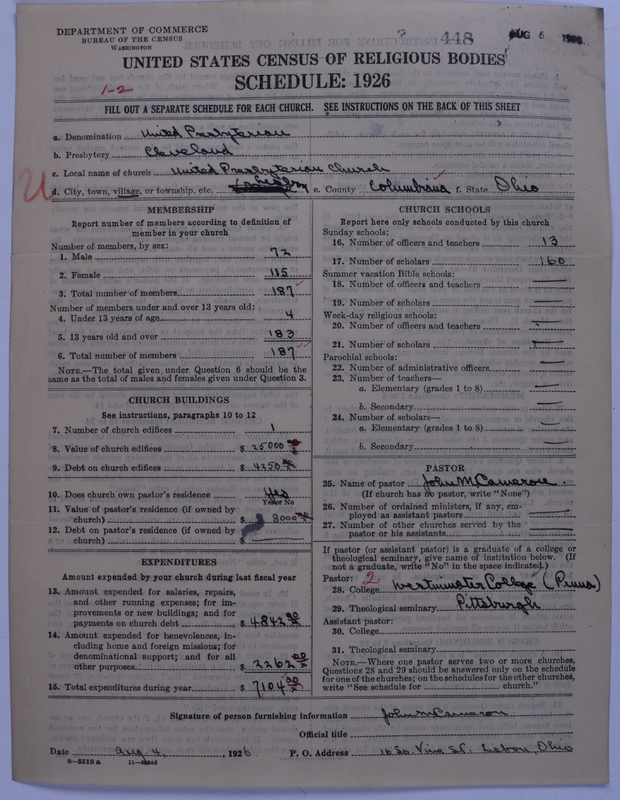 DEPARTMENT OF COMMERCE
BUREAU OF THE CENSUS
WASHINGTON
448
AUG 6 1926
UNITED STATES CENSUS OF RELIGIOUS BODIES
SCHEDULE: 1926
1-2
FILL OUT A SEPARATE SCHEDULE FOR EACH CHURCH. SEE INSTRUCTIONS ON THE BACK OF THIS SHEET
a. Denomination United Presbyterian
b. Presbytery Cleveland
c. Local name of church United Presbyterian Church
U d. City, town, village, or township, etc. Lisbon e. County Columbiana f. State Ohio
MEMBERSHIP
Report number of members according to definition of
member in your church
Number of members, by sex:
1. Male 72
2. Female 115
3. Total number of members 187
Number of members under and over 13 years old:
4. Under 13 years of age 4
5. 13 years old and over 183
6. Total number of members 187
NOTE.—The total given under Question 6 should be the
same as the total of males and females given under Question 3.
CHURCH BUILDINGS
See instructions, paragraphs 10 to 12
7. Number of church edifices 1
8. Value of church edifices $ 25000
9. Debt on church edifices $ 4350
10. Does church own pastor's residence Yes
Yes or No
11. Value of pastor's residence (if owned by
church) $ 8000
12. Debt on pastor's residence (if owned by
church) $
EXPENDITURES
Amount expended by your church during last fiscal year
13. Amount expended for salaries, repairs,
and other running expenses; for im-
provements or new buildings; and for
payments on church debt $ 4842.00
14. Amount expended for benevolences, in-
cluding home and foreign missions; for
denominational support; and for all
other purposes $ 2262.00
15. Total expenditures during year $ 7104.00
CHURCH SCHOOLS
Report here only schools conducted by this church
Sunday schools:
16. Number of officers and teachers 13
17. Number of scholars 160
Summer vacation Bible schools:
18. Number of officers and teachers —
19. Number of scholars —
Week-day religious schools:
20. Number of officers and teachers —
21. Number of scholars —
Parochial schools:
22. Number of administrative officers —
23. Number of teachers—
a. Elementary (grades 1 to 8) —
b. Secondary —
24. Number of scholars—
a. Elementary (grades 1 to 8) —
b. Secondary —
PASTOR
25. Name of pastor John M Cameron
(If church has no pastor, write "None")
26. Number of ordained ministers, if any, em-
ployed as assistant pastors —
27. Number of other churches served by the
pastor or his assistants —
If pastor (or assistant pastor) is a graduate of a college or
theological seminary, give name of institution below. (If
not a graduate, write "No" in the space indicated.)
Pastor: 2
28. College Westminster College (Penna)
29. Theological seminary Pittsburgh
Assistant pastor:
30. College
31. Theological seminary
NOTE.—Where one pastor serves two or more churches,
Questions 28 and 29 should be answered only on the schedule
for one of the churches; on the schedules for the other churches,
write "See schedule for church."
Signature of person furnishing information John M Cameron
Official title
Date Aug 4, 1926 P. O. Address 16 So Vine St. Lisbon, Ohio
8—5518 a